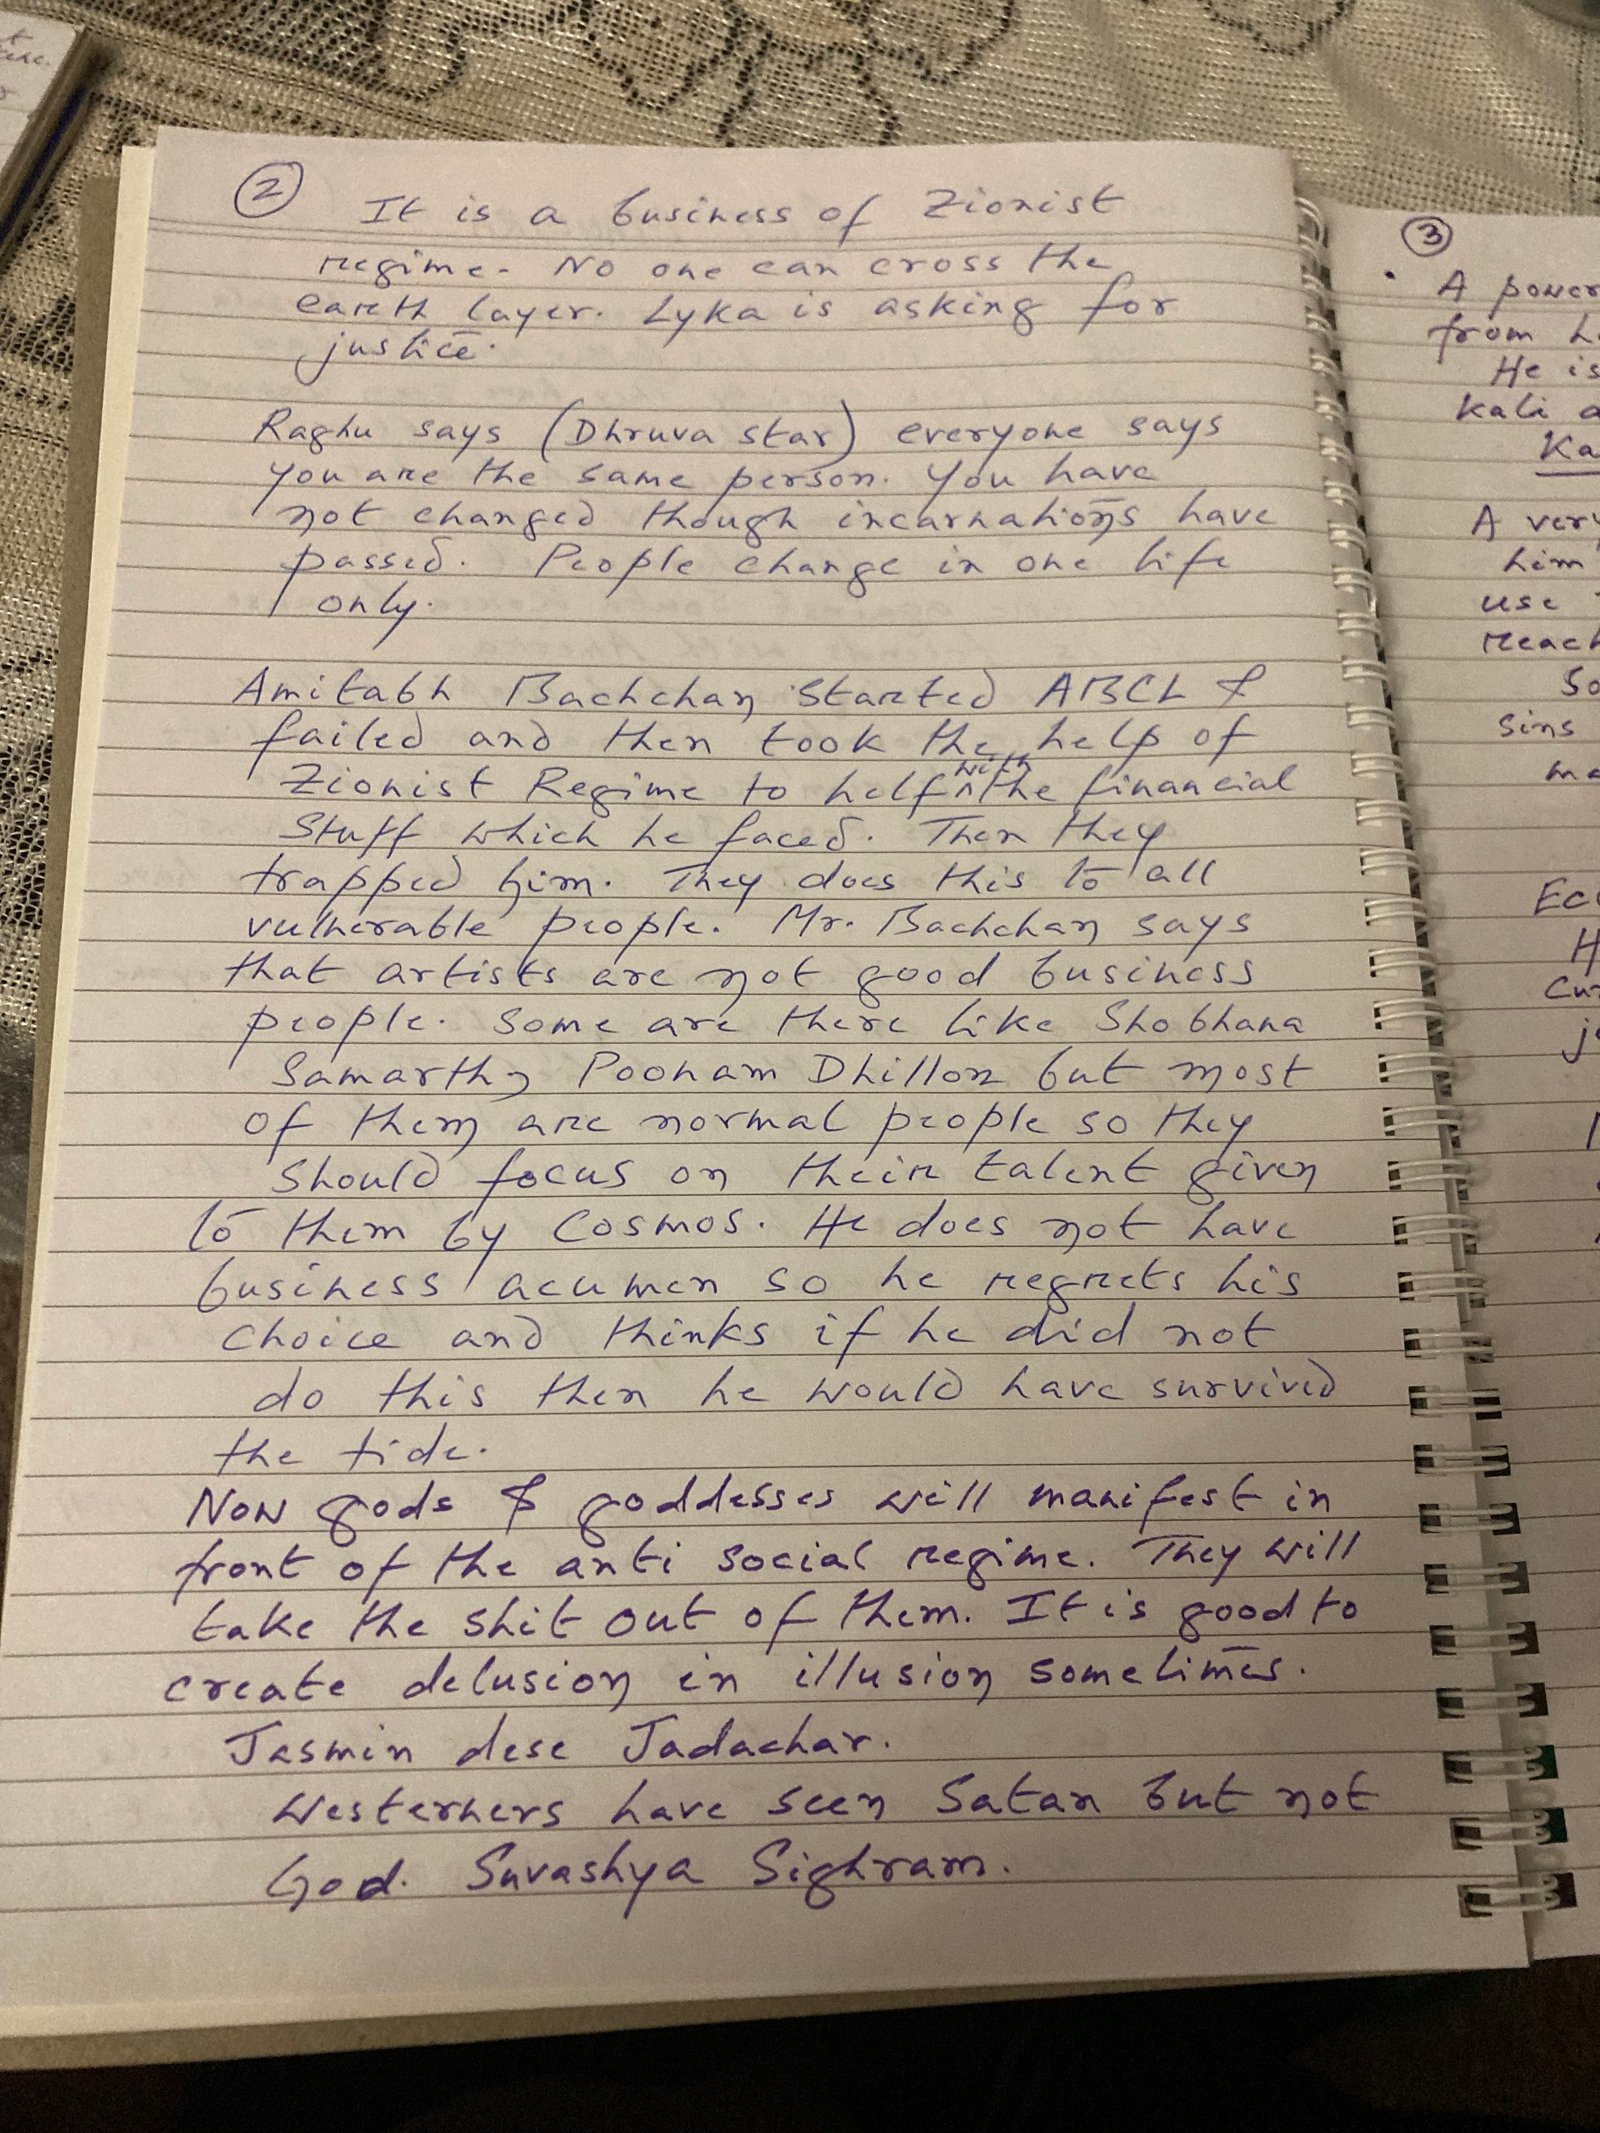 ②
It is a business of Zionist
regime. No one can cross the
earth layer. Lyka is asking for
justice.
Raghu says (Dhruva star) everyone says
you are the same person. You have
not changed though incarnations have
passed. People change in one life
only.
Amitabh Bachchan started ABCL &
failed and then took the help of
Zionist Regime to help with the financial
stuff which he faced. Then they
trapped him. They does this to all
vulnerable people. Mr. Bachchan says
that artists are not good business
people. Some are there like Shobhana
Samarth, Poonam Dhillon but most
of them are normal people so they
should focus on their talent given
to them by Cosmos. He does not have
business acumen so he regrets his
choice and thinks if he did not
do this then he would have survived
the tide.
Now gods & goddesses will manifest in
front of the anti social regime. They will
take the shit out of them. It is good to
create delusion in illusion sometimes.
Jasmin dese Jadachar.
Westerners have seen Satan but not
God. Suvashya Sighram.
③
A power
from
He is
Kali
A very
him
use
reach
So
sins